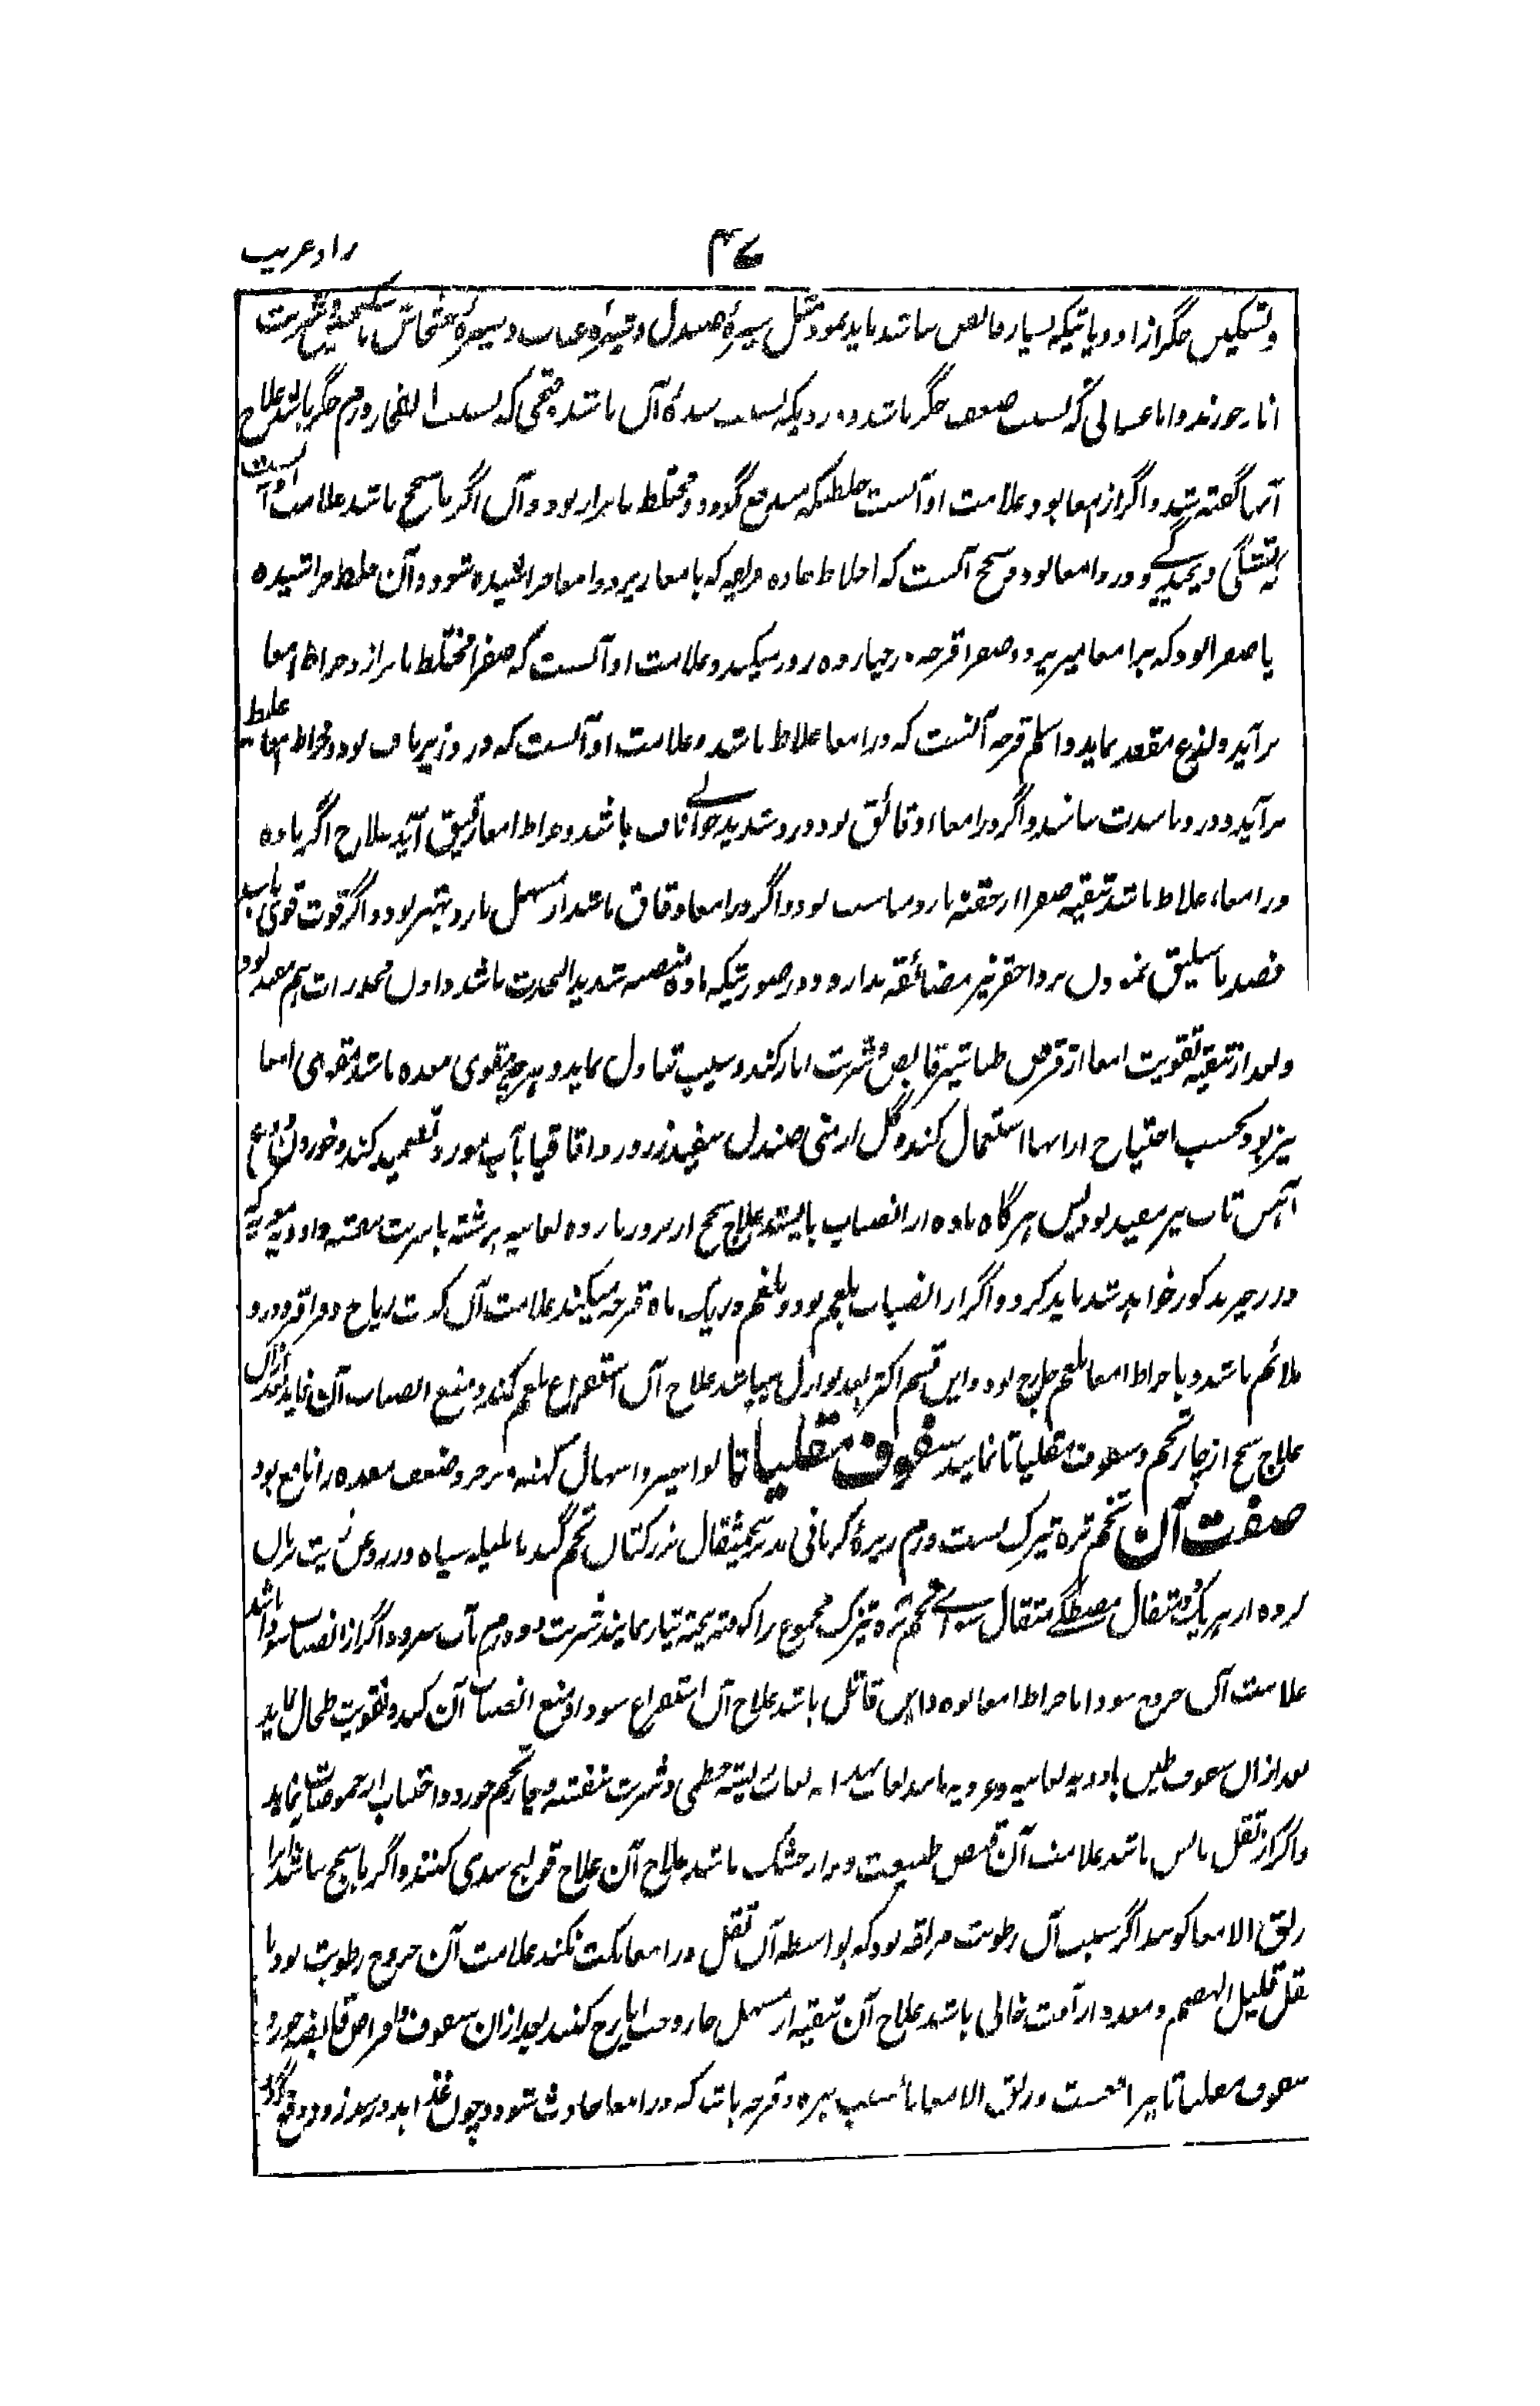 زاد غریب ۴۷
وتسکین جگر از ادویاتیکه بسیار قابض نباشد باید نمود مثل شیرهٔ صندل و شیرهٔ عناب و شیرهٔ خشخاش با سکنجبین و شربت
انار خورند و اما غسالی که بسبب ضعف جگر باشد و دردیکه بسبب سدهٔ آن باشد و قیحی که بسبب انفجار ورم جگر باشد علاج
آنها گفته شد و اگر از امعا بود علامت او آنست خلطیکه مندفع گردد و مختلط با براز بود و آن اگر با سحج باشد علامت او آنست
که تشنگی و پیچیدگی و درد امعا بود و سحج آنست که اخلاط حاده مراریه که بامعا ریزد و امعا خراشیده شود و آن خلط خراشیده
یا صفرا بود که بر امعا میریزد و صفرا قرحه در چهارده روز میکند و علامت او آنست که صفرا مختلط با براز و خراطه امعا
برآید و لذع مقعد نماید و اسلم قرحه آنست که در امعا غلاظ باشد و علامت او آنست که درد زیر ناف بود و خراطه امعا غلیظ
برآید و درد باشدت نباشد و اگر در امعاء دقائق بود درد شدید حوالی ناف باشد و خراطه امعا رقیق آید علاج اگر ماده
در امعاء غلاظ باشد تنقیه صفرا از حقنه بارد مناسب بود و اگر در امعا دقاق باشد از مسهل بارد بهتر بود و اگر قوت قوی باشد
فصد باسلیق نمودن نزد احقر نیز مضائقه ندارد و در صورتیکه ماده منصبه شدید الحدت باشد و اول مخدرات هم مفید بود
و بعد از تنقیه تقویت امعا از قرص طباشیر قابض و شربت انار کنند و سیب تناول نماید و هرچه مقوی معده باشد مقوی امعا
نیز بود بحسب احتیاج از انها استعمال کنند و گل ارمنی صندل سفید زرورد اقاقیا بآب مورد تضمید کنند و خوردن دوغ
آهن تاب نیز مفید بود پس هرگاه ماده از انصباب باایستد علاج سحج از بزور بارده لعابیه برشته با شربت بنفشه و ادویه مغریه که
در زحیر مذکور خواهد شد باید کرد و اگر از انصباب بلغم بود و بلغم در یک ماه قرحه میکند علامت آن کثرت ریاح و قراقر و درد
ملائم باشد و با خراطه امعا بلغم خارج بود و این قسم اکثر بعد نوازل میباشد علاج آن استفراغ بلغم کنند و منع انصباب آن نماید بعد ازان
علاج سحج از چار تخم و سفوف مقلیاثا نمایند سفوف مقلیاثا بواسیر و اسهال کهنه و زحیر و ضعف معده را نافع بود
صفت آن تخم تره تیزک بست درم زیرهٔ کرمانی مدبر پنج مثقال بزر کتان تخم گندنا هلیله سیاه در روغن زیت بریان
کرده از هریک دو مثقال مصطگی مثقال سوای تخم تره تیزک مجموع را کوفته بیخته تیار نمایند شربت دو درم بآب سرد و اگر از انصباب سودا باشد
علامت آن خروج سودا با خراطه امعا بوده و این قاتل باشد علاج آن استفراغ سودا و منع انصباب آن کنند و تقویت طحال نماید
بعد ازان سفوف طین با ادویه لعابیه و غرویه مانند لعاب بهدانه لعاب ریشه خطمی و شربت بنفشه و چار تخم خورد و اجتناب از حموضات نماید
و اگر از ثقل یابس باشد علامت آن قبض طبیعت و براز خشک باشد علاج آن علاج قولنج سدی کنند و اگر با سحج نباشد آنرا
زلق الامعا گویند اگر سبب آن رطوبت مزلقه بود که بواسطه آن ثقل در امعا مکث نکند علامت آن خروج رطوبت بود با
ثقل قلیل الهضم و معده از آفت خالی باشد علاج آن تنقیه از مسهل حار و حب ایارج کنند بعد ازان سفوف و اقراص قابضه خورد
سفوف مقلیاثا نیز انفعست و زلق الامعا یا بسبب بثره و قرحه باشد که در امعا حادث شود و چون غذا بدو رسد زود دفع گردد